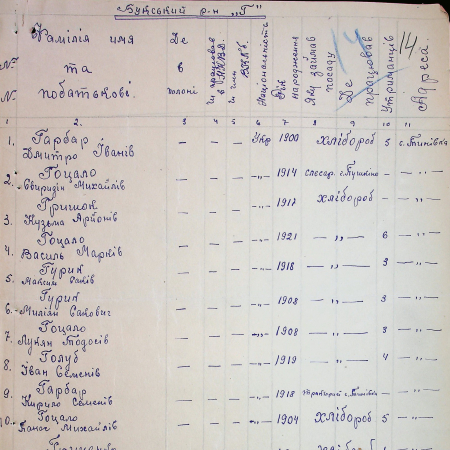 Букський р-н "Г"
14
№ № Фамілія имя та побатькові. Де в полоні Чи працював в У.Н.К.В.Д. Чи член В.К.П.б. Національність Рік народження Яку займав посаду Де працював Утриманців Адреса.
1 2. 3 4 5 6 7 8 9 10 11
1. Гарбар Дмитро Іванів — — — Укр 1900 Хлібороб 5 с. Тинівка
2. Гоцало Свиридин Михайлів — — — -„- 1914 слесар -
3. Гришок Кузьма — — — -„- 1917 Хлібороб -
4. Гоцало Василь Марків — — — -„- 1921 — „ — 6 - „ -
5. Гурин Максим — — — -„- 1918 — „ — 3 - „ -
6. Гурин Милян — — — -„- 1908 — „ — 3 - „ -
7. Гоцало Лукян Тодосів — — — -„- 1908 — „ — 3 - „ -
8. Голуб Іван Семенів — — — -„- 1919 — „ — 4 - „ -
9. Гарбар Кирило Семенів — — — -„- 1918 - „ -
10. Гоцало Панас Михайлів — — — -„- 1904 Хлібороб 5 - „ -